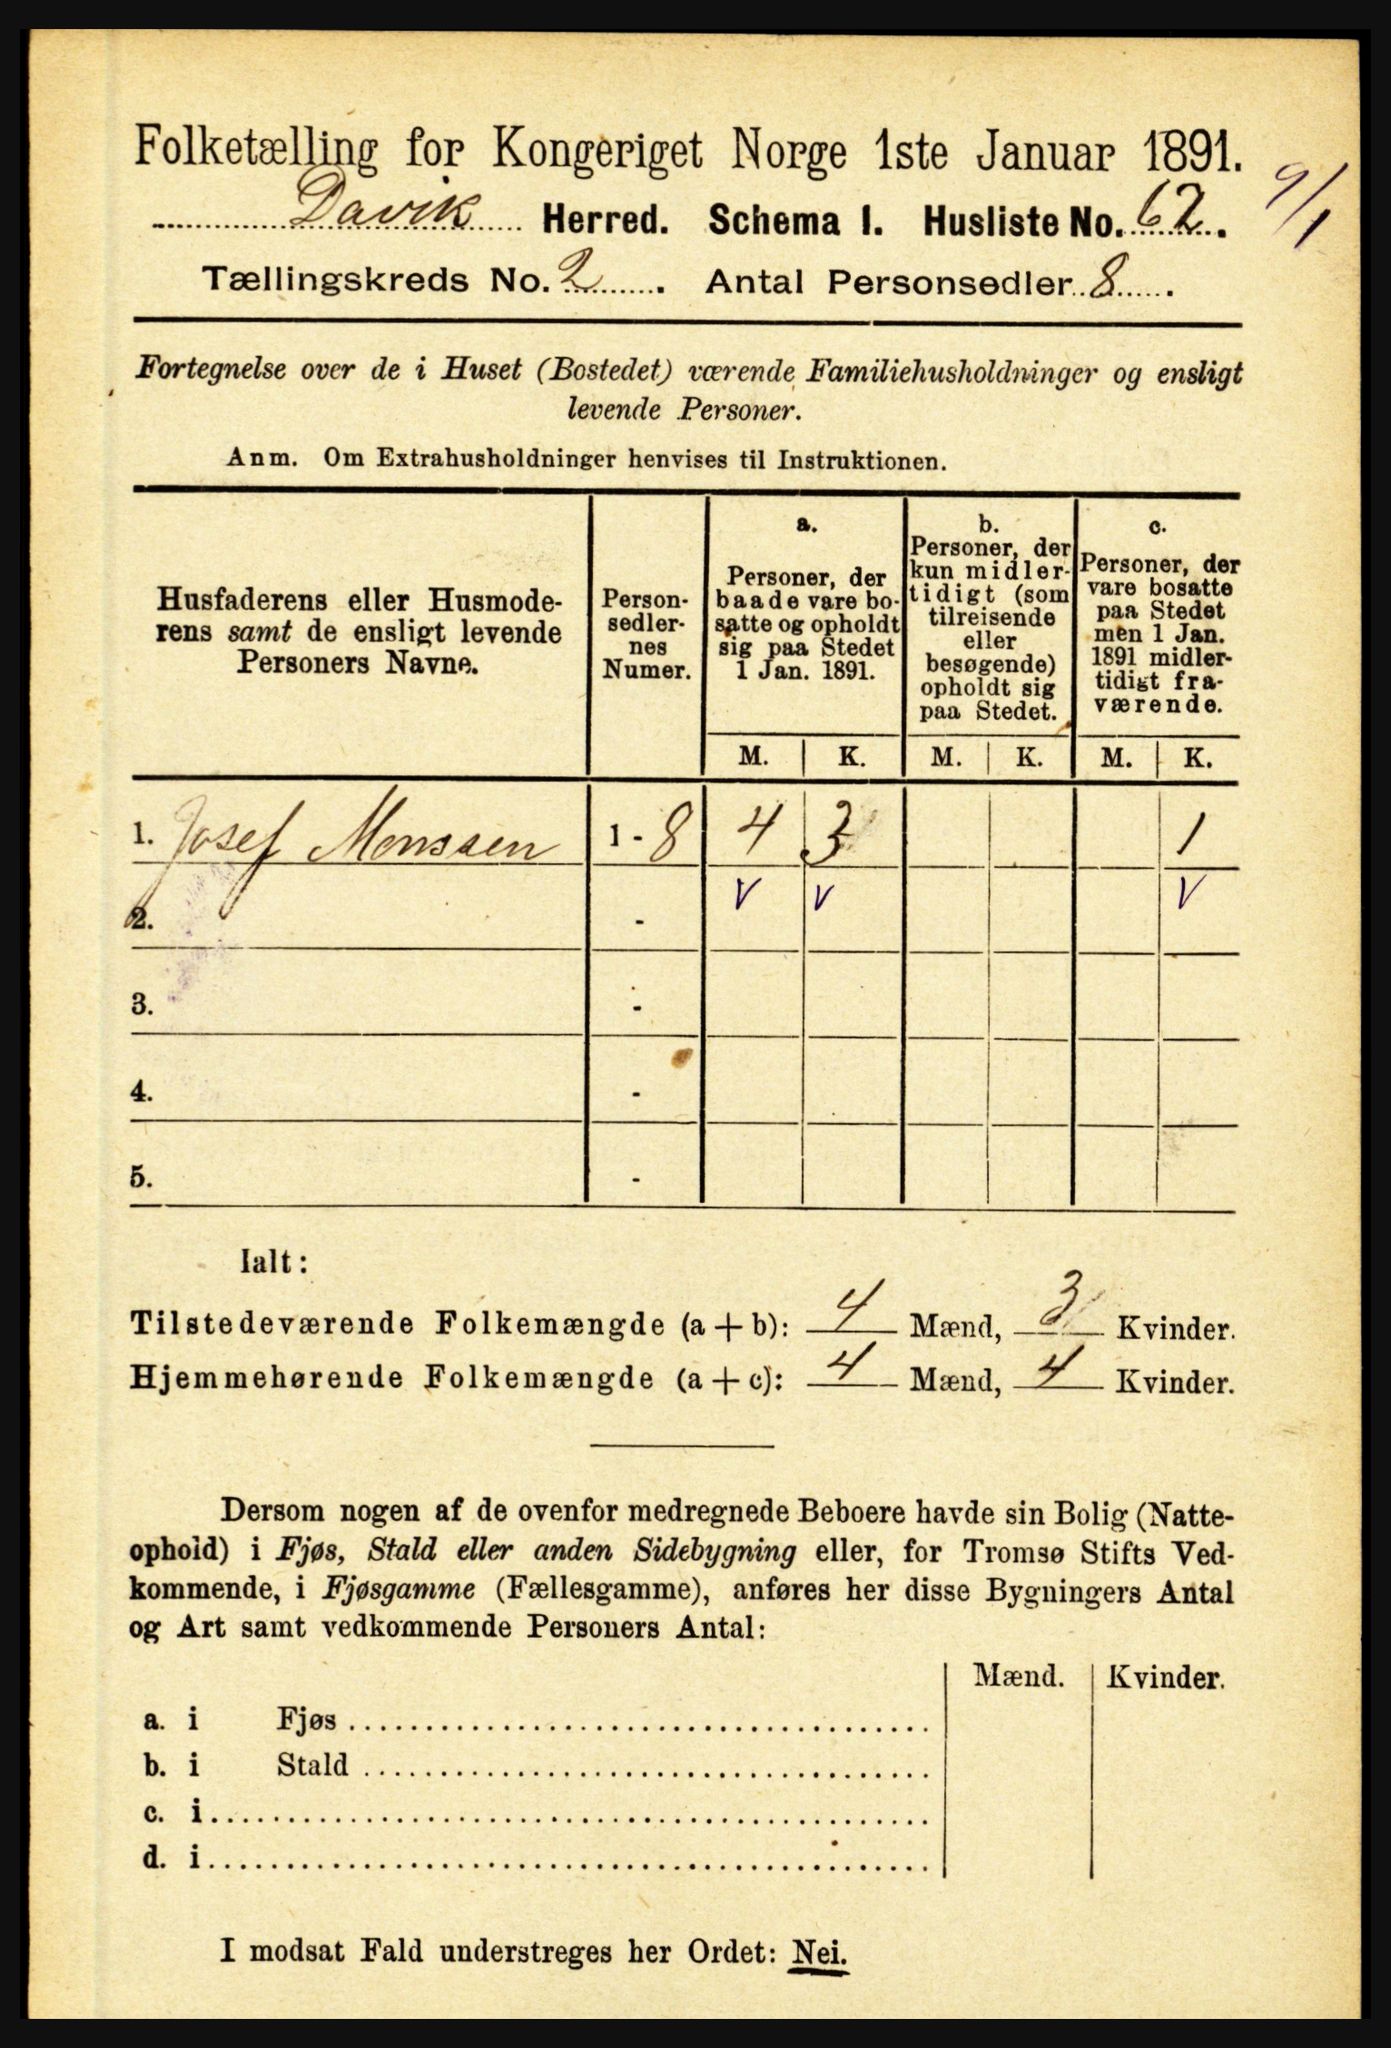 Folketælling for Kongeriget Norge 1ste Januar 1891.
9/1
Davik Herred. Schema I. Husliste No. 62.
Tællingskreds No. 2. Antal Personsedler 8.
Fortegnelse over de i Huset (Bostedet) værende Familiehusholdninger og ensligt
levende Personer.
Anm. Om Extrahusholdninger henvises til Instruktionen.
Husfaderens eller Husmode-
rens samt de ensligt levende
Personers Navne.
Person-
sedler-
nes
Numer.
a.
Personer, der
baade vare bo-
satte og opholdt
sig paa Stedet
1 Jan. 1891.
b.
Personer, der
kun midler-
tidigt (som
tilreisende
eller
besøgende)
opholdt sig
paa Stedet.
c.
Personer, der
vare bosatte
paa Stedet
men 1 Jan.
1891 midler-
tidigt fra-
værende.
M. K. M. K. M. K.
1. Josef Monssen 1 - 8 4 3 1
2. - v v v
3. -
4. -
5. -
Ialt:
Tilstedeværende Folkemængde (a + b): 4 Mænd, 3 Kvinder.
Hjemmehørende Folkemængde (a + c): 4 Mænd, 4 Kvinder.
Dersom nogen af de ovenfor medregnede Beboere havde sin Bolig (Natte-
ophold) i Fjøs, Stald eller anden Sidebygning eller, for Tromsø Stifts Ved-
kommende, i Fjøsgamme (Fællesgamme), anføres her disse Bygningers Antal
og Art samt vedkommende Personers Antal:
Mænd. Kvinder.
a. i Fjøs
b. i Stald
c. i
d. i
I modsat Fald understreges her Ordet: Nei.